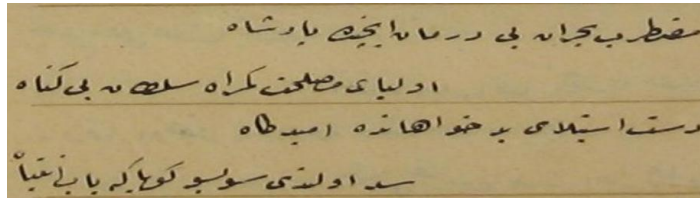 مضطرب بحران بی درمان ایچنده پادشاه
اولیای مصلحت کمراه سلطان بی کناه
دست استیلای بد خواهانده امیدکاه
سد اولندی سو بسو کویا که باب اتقیا